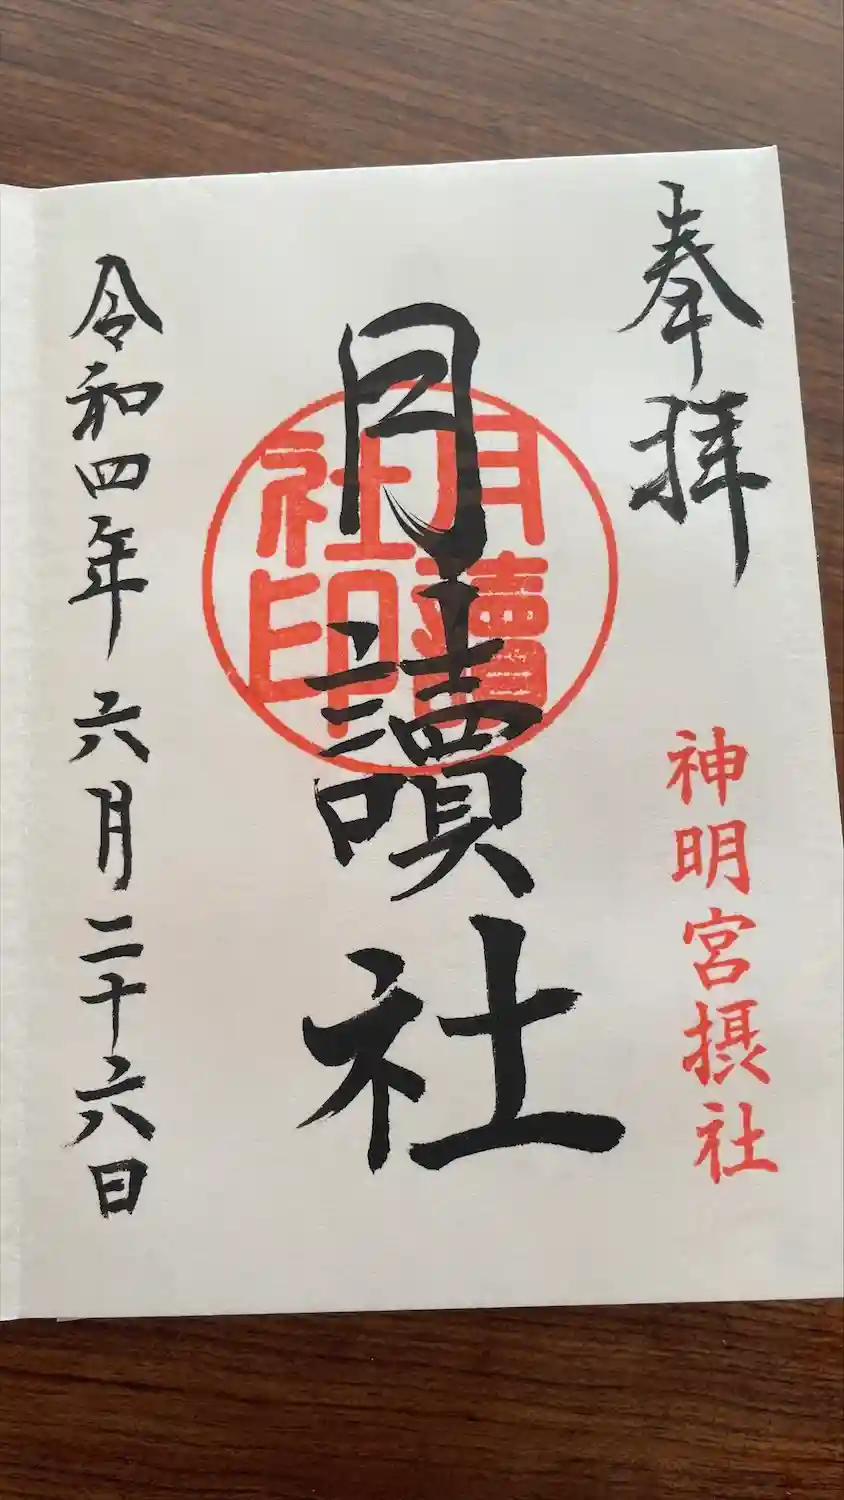 奉拝
神明宮摂社
月讀社
月讀社印
令和四年六月二十六日